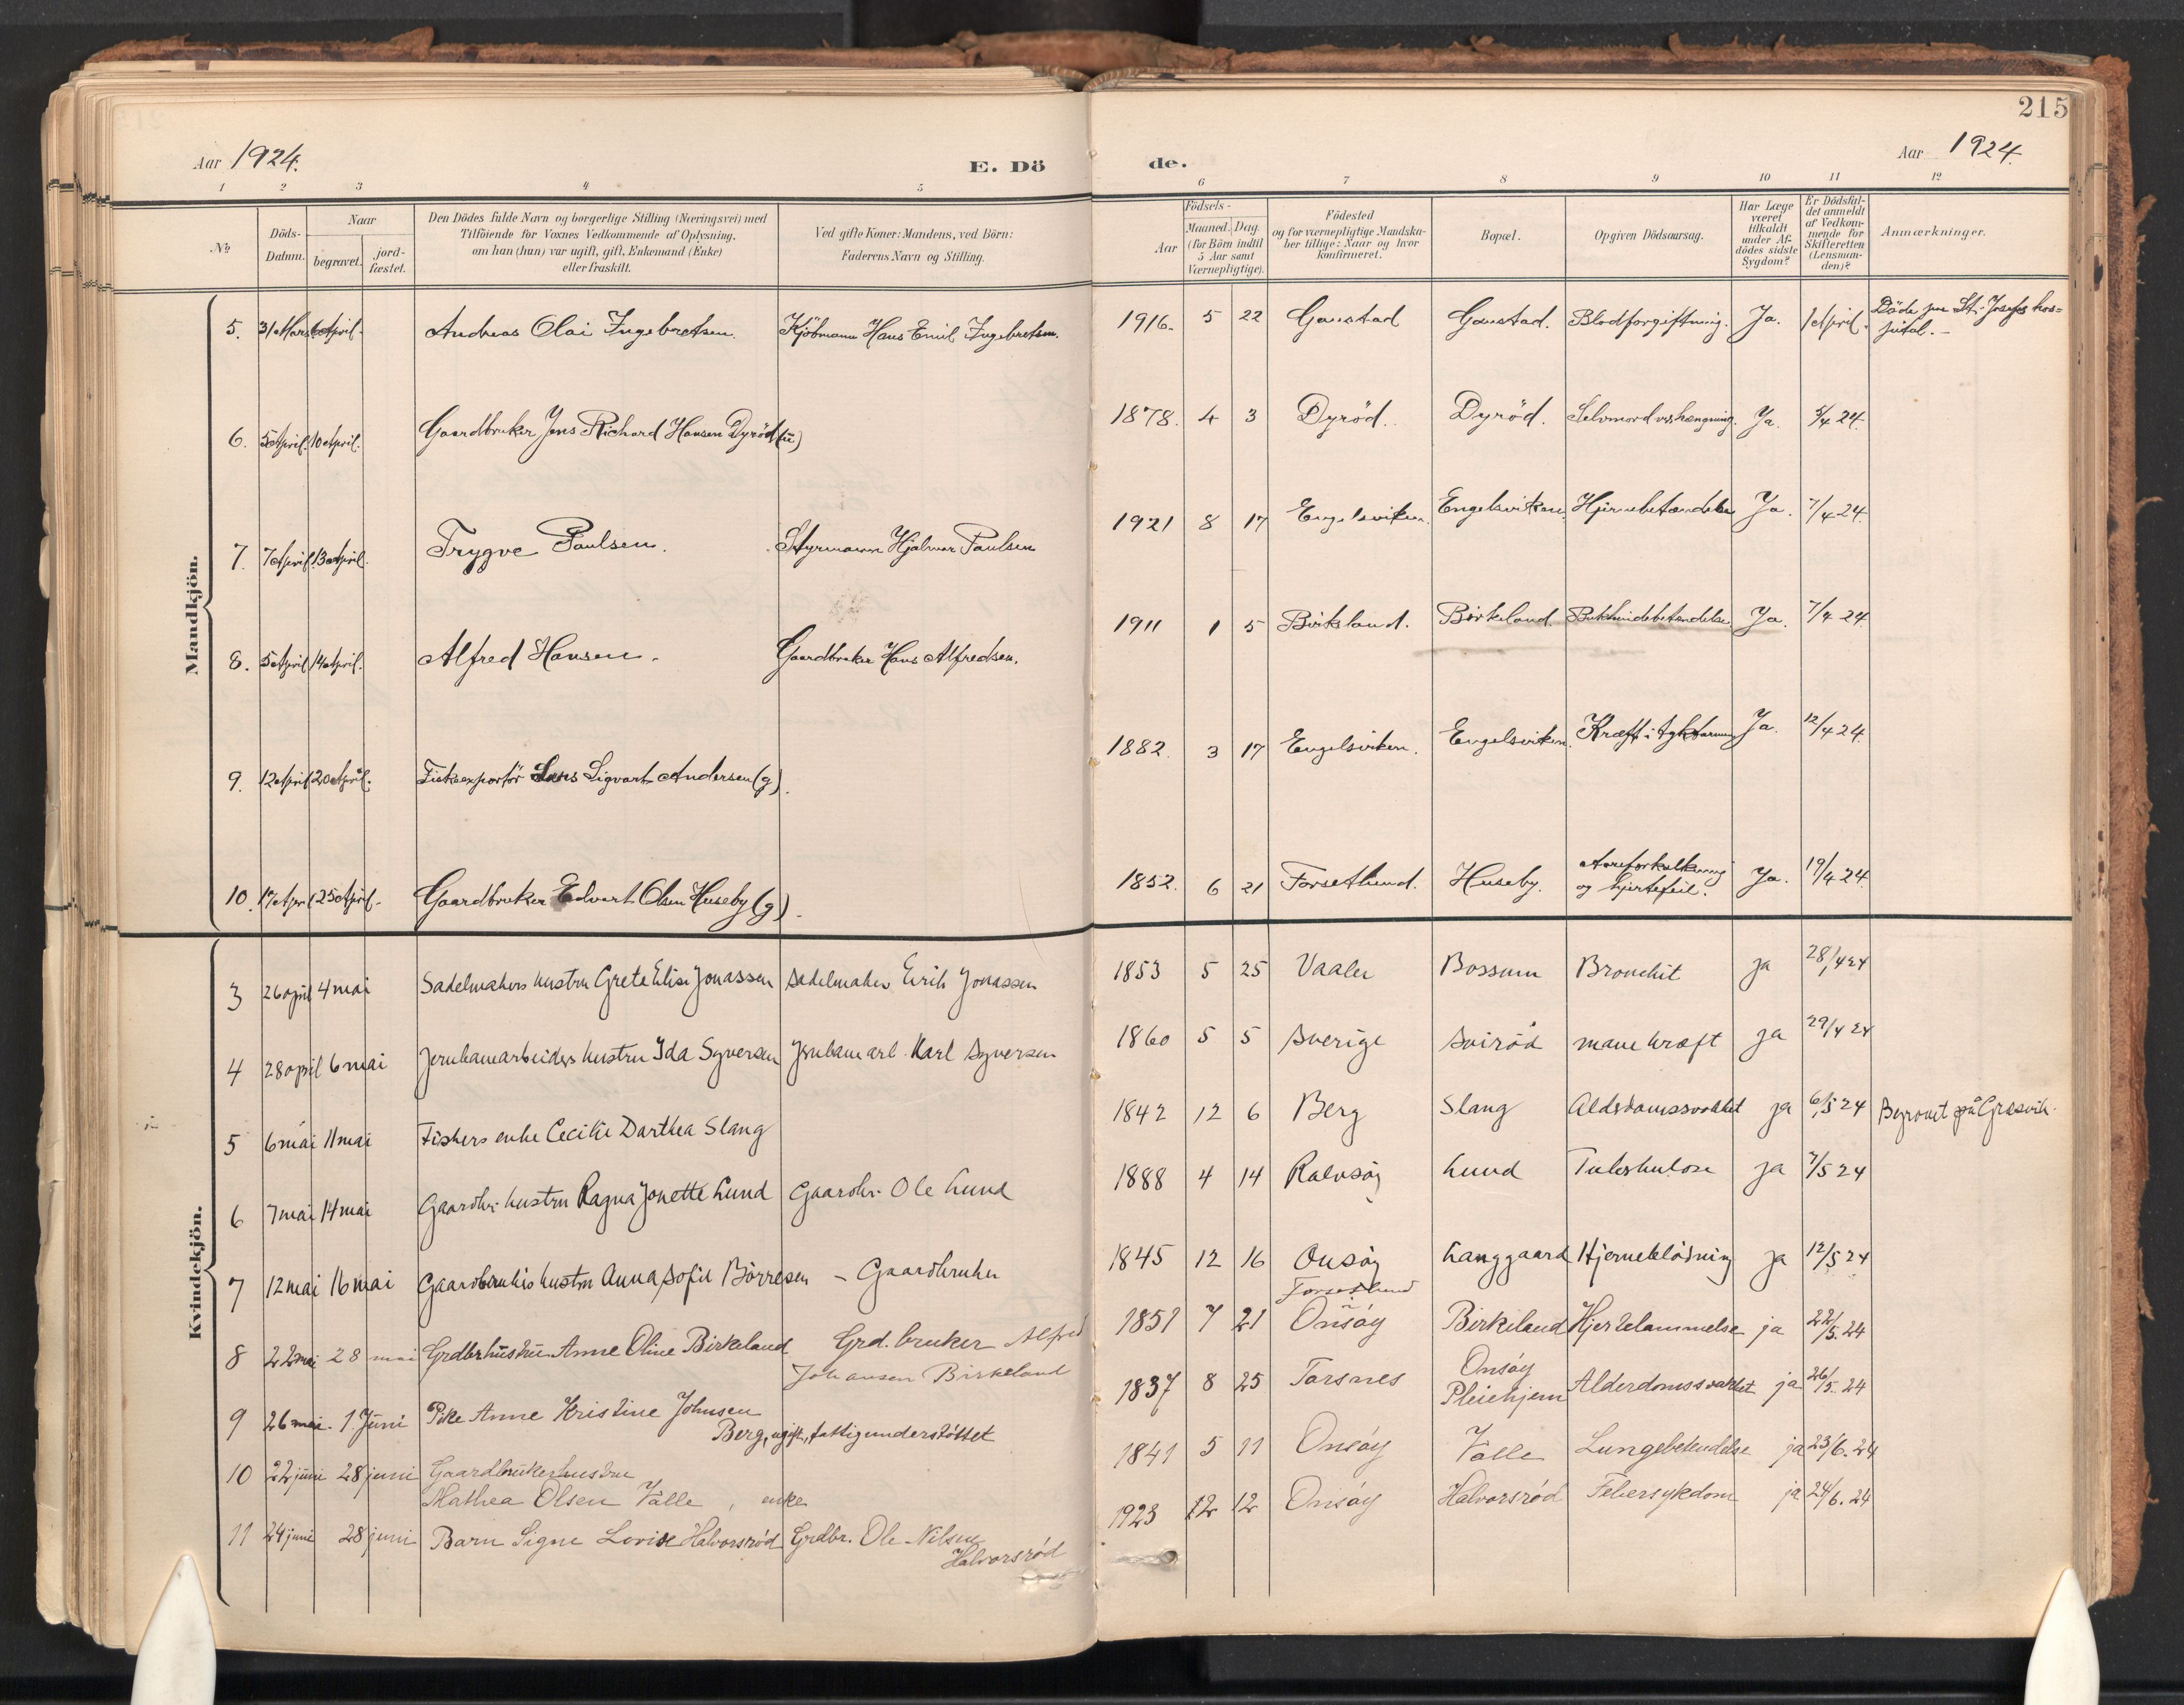 215
Aar 1924.
E. Dö
de.
Aar 1924.
1 2 3 4 5 6 7 8 9 10 11 12
No.
Döds-
Datum.
Naar
begravet.
jord-
fæstet.
Den Dödes fulde Navn og borgerlige Stilling (Næringsvei) med
Tilföiende for Voxnes Vedkommende af Oplysning,
om han (hun) var ugift, gift, Enkemand (Enke)
eller fraskilt.
Ved gifte Koner: Mandens, ved Börn:
Faderens Navn og Stilling.
Födsels-
Aar
Maaned.
Dag.
(for Börn indtil
5 Aar samt
Værnepligtige).
Födested
og for værnepligtige Mandska-
ber tillige: Naar og hvor
konfirmeret.
Bopæl.
Opgiven Dödsaarsag.
Har Læge
været
tilkaldt
under Af-
dödes sidste
Sygdom?
Er Dödsfal-
det anmeldt
af Vedkom-
mende for
Skifteretten
(Lensman-
den)?
Anmærkninger.
Mandkjön.
5. 31 Mars 6 April. Andreas Olai Ingebretsen. Kjöbmann Hans Emil Ingebretsen. 1916. 5 22 Gaustad Gaustad. Blodforgiftning. Ja. 1 April. Döde paa St. Josefs hos-
pital.
6. 5 April. 10 April. Gaardbruker Jens Richard Hansen Dyröd (u) 1878. 4 3 Dyröd. Dyröd. Selvmord ved hængning. Ja. 5/4 24.
7. 7 April. 13 April. Trygve Paulsen. Styrmann Hjalmar Paulsen 1921 8 17 Engelsviken. Engelsviken. Hjernebetændelse Ja. 7/4 24.
8. 5 April. 14 April. Alfred Hansen. Gaardbruker Hans Alfredsen. 1911 1 5 Birkeland. Birkeland. Bukhindebetændelse. Ja. 7/4 24.
9. 12 April 20 April. Fiskeexportör Lars Sigvart Andersen (g). 1882. 3 17 Engelsviken. Engelsviken. Kræft i tyktarmen Ja. 12/4 24.
10. 17 April 25 April. Gaardbruker Edvart Olsen Huseby (g). 1852. 6 21 Forsetlund. Huseby. Aareforkalkning
og hjertefeil. Ja. 19/4 24.
Kvindekjön.
3 26 april 4 mai Sadelmakers hustru Grete Elise Jonassen Sadelmaker Erik Jonassen 1853 5 25 Vaaler Bossum Bronchit ja 28/4 24
4 28 april 6 mai Jernbanearbeiders hustru Ida Syversen Jernbanearb. Karl Syversen 1860 5 5 Sverige Svirød mavekræft ja 29/4 24
5 6 mai 11 mai Fiskers enke Cecilie Darthea Slang 1842 12 6 Berg Slang Alderdomssvakhet ja 6/5 24 Begravet på Gressvik.
6 7 mai 14 mai Gaardbr. hustru Ragna Jonette Lund Gaardbr. Ole Lund 1888 4 14 Rolvsøy Lund Tuberkulose ja 7/5 24
7 12 mai 16 mai Gaardbrukers hustru Anna Sofie Børresen - Gaardbruker 1845 12 16 Onsøy Langgaard Hjerneblødning ja 12/5 24
8 22 mai 28 mai Grdbr. hustru Anne Oline Birkeland Grd. bruker Alfred
Johansen Birkeland 1851 7 21 Forsetlund
Onsøy Birkeland Hjertelammelse ja 22/5. 24
9 26 mai. 1. Juni Pike Anne Kristine Johnsen
Berg, ugift, fattigunderstøttet 1837 8 25 Torsnes Onsøy
Pleiehjem Alderdomssvakhet ja 26/5. 24
10 22 juni 28 juni Gaardbrukerhustru
Mathea Olsen Valle, enke 1841 5 11 Onsøy Valle Lungebetendelse ja 23/6. 24
11 24 juni 28 juni Barn Signe Lovise Halvorsrød Grdbr. Ole Nilsen
Halvorsrød 1923 12 12 Onsøy Halvorsrød Febersykdom ja 24/6. 24